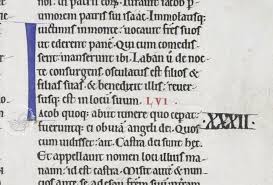 numorem patris sui isaac. Immolatisq;
uictimis inmonte: uocauit fres suos
ut ederent pane. Qui cum comedis
sent: manserunt ibi. Laban ũ de noc
te consurgens. osculatus est filios &
filias suas. & benedixit illis: reuer
susq; est in locũ suum. LVI
Iacob quoq; abiit itinere quo ceperat:
fueruntq; ei obuiã angeli dei. Quos
cum uidisset: ait. Castra dei sunt hec.
Et appellauit nomen loci illius ma
naim: id est castra. Misit autem & nun
XXXII.